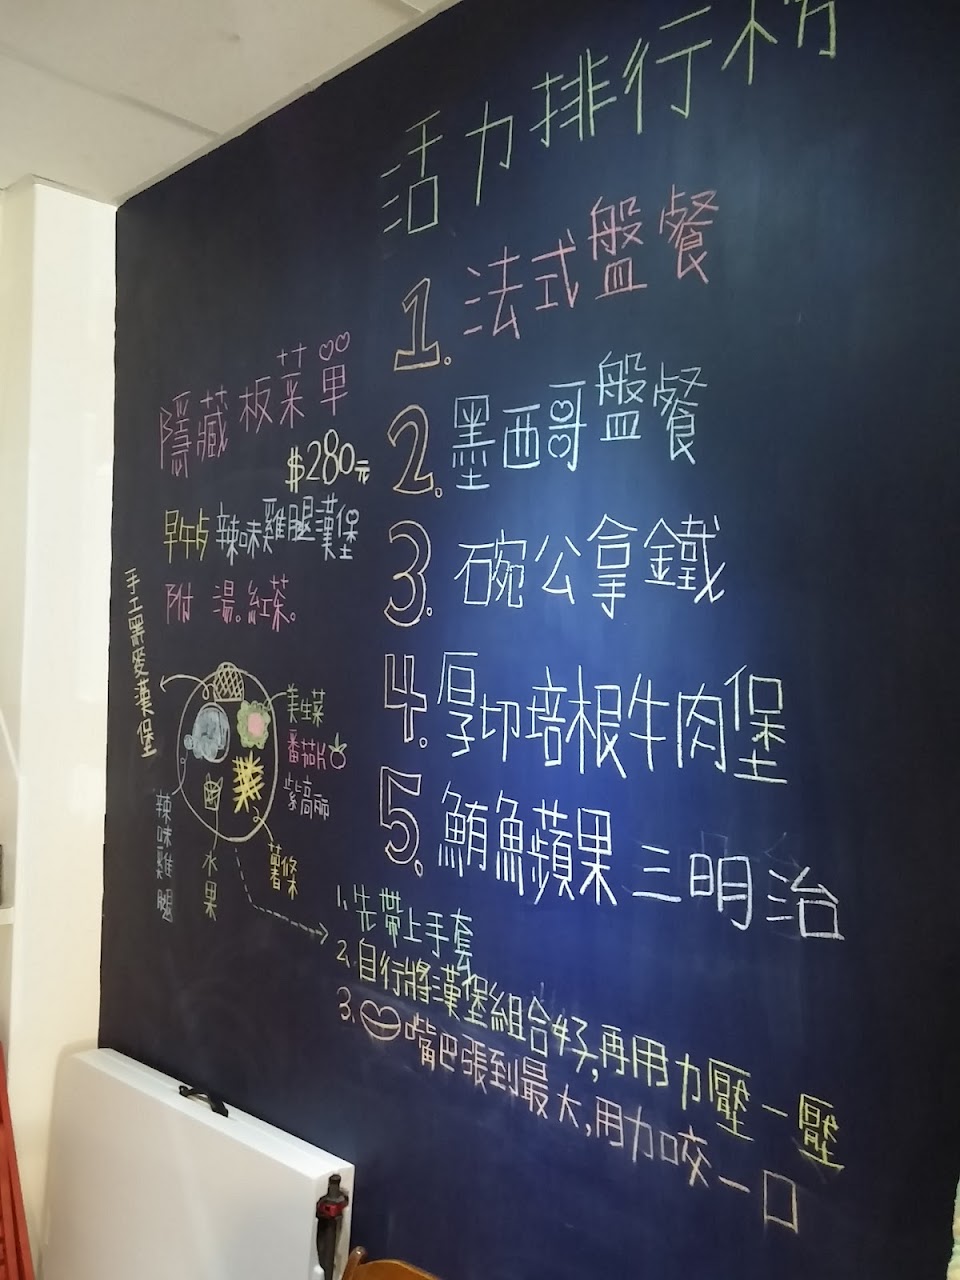 活力排行榜
1. 法式盤餐
2. 墨西哥盤餐
3. 碗公拿鐵
4. 厚切培根牛肉堡
5. 鮪魚蘋果三明治
隱藏板菜單
$280元
早午歺 辣味雞腿漢堡
附 湯。紅茶。
手工黑愛漢堡
美生菜
番茄片
紫高丽
辣味雞腿
水果
薯條
1. 先帶上手套
2. 自行將漢堡組合好,再用力壓一壓
3. 嘴巴張到最大,用力咬一口